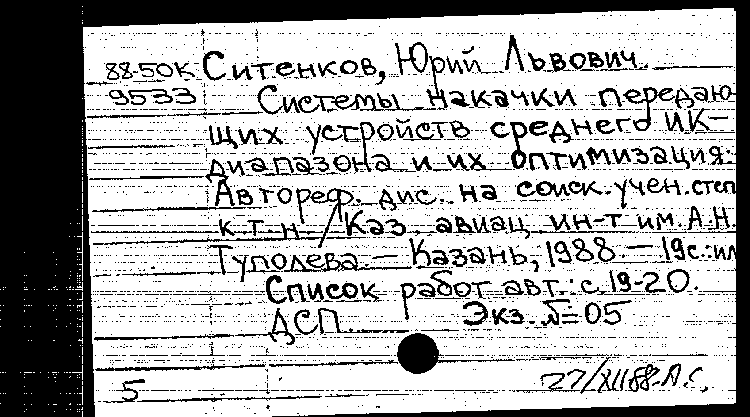 88-50К Ситенков, Юрий Львович.
9533 Системы накачки передаю-
щих устройств среднего ИК-
диапазона и их оптимизация:
Автореф. дис. на соиск. учен. степ
к.т.н. / Каз. авиац. ин-т им. А.Н.
Туполева. — Казань, 1988. — 19с.:ил
Список работ авт.: с. 19-20.
ДСП. Экз. №=05
5 27/XII88-А.С.